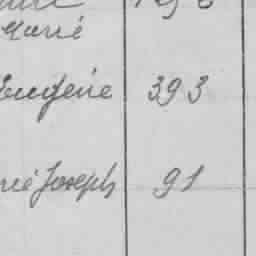 Marié
Eugénie 393
rié Joseph 91